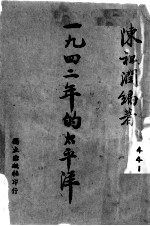 陳祖澤編著
一九四二年的太平洋
獨立出版社印行
441